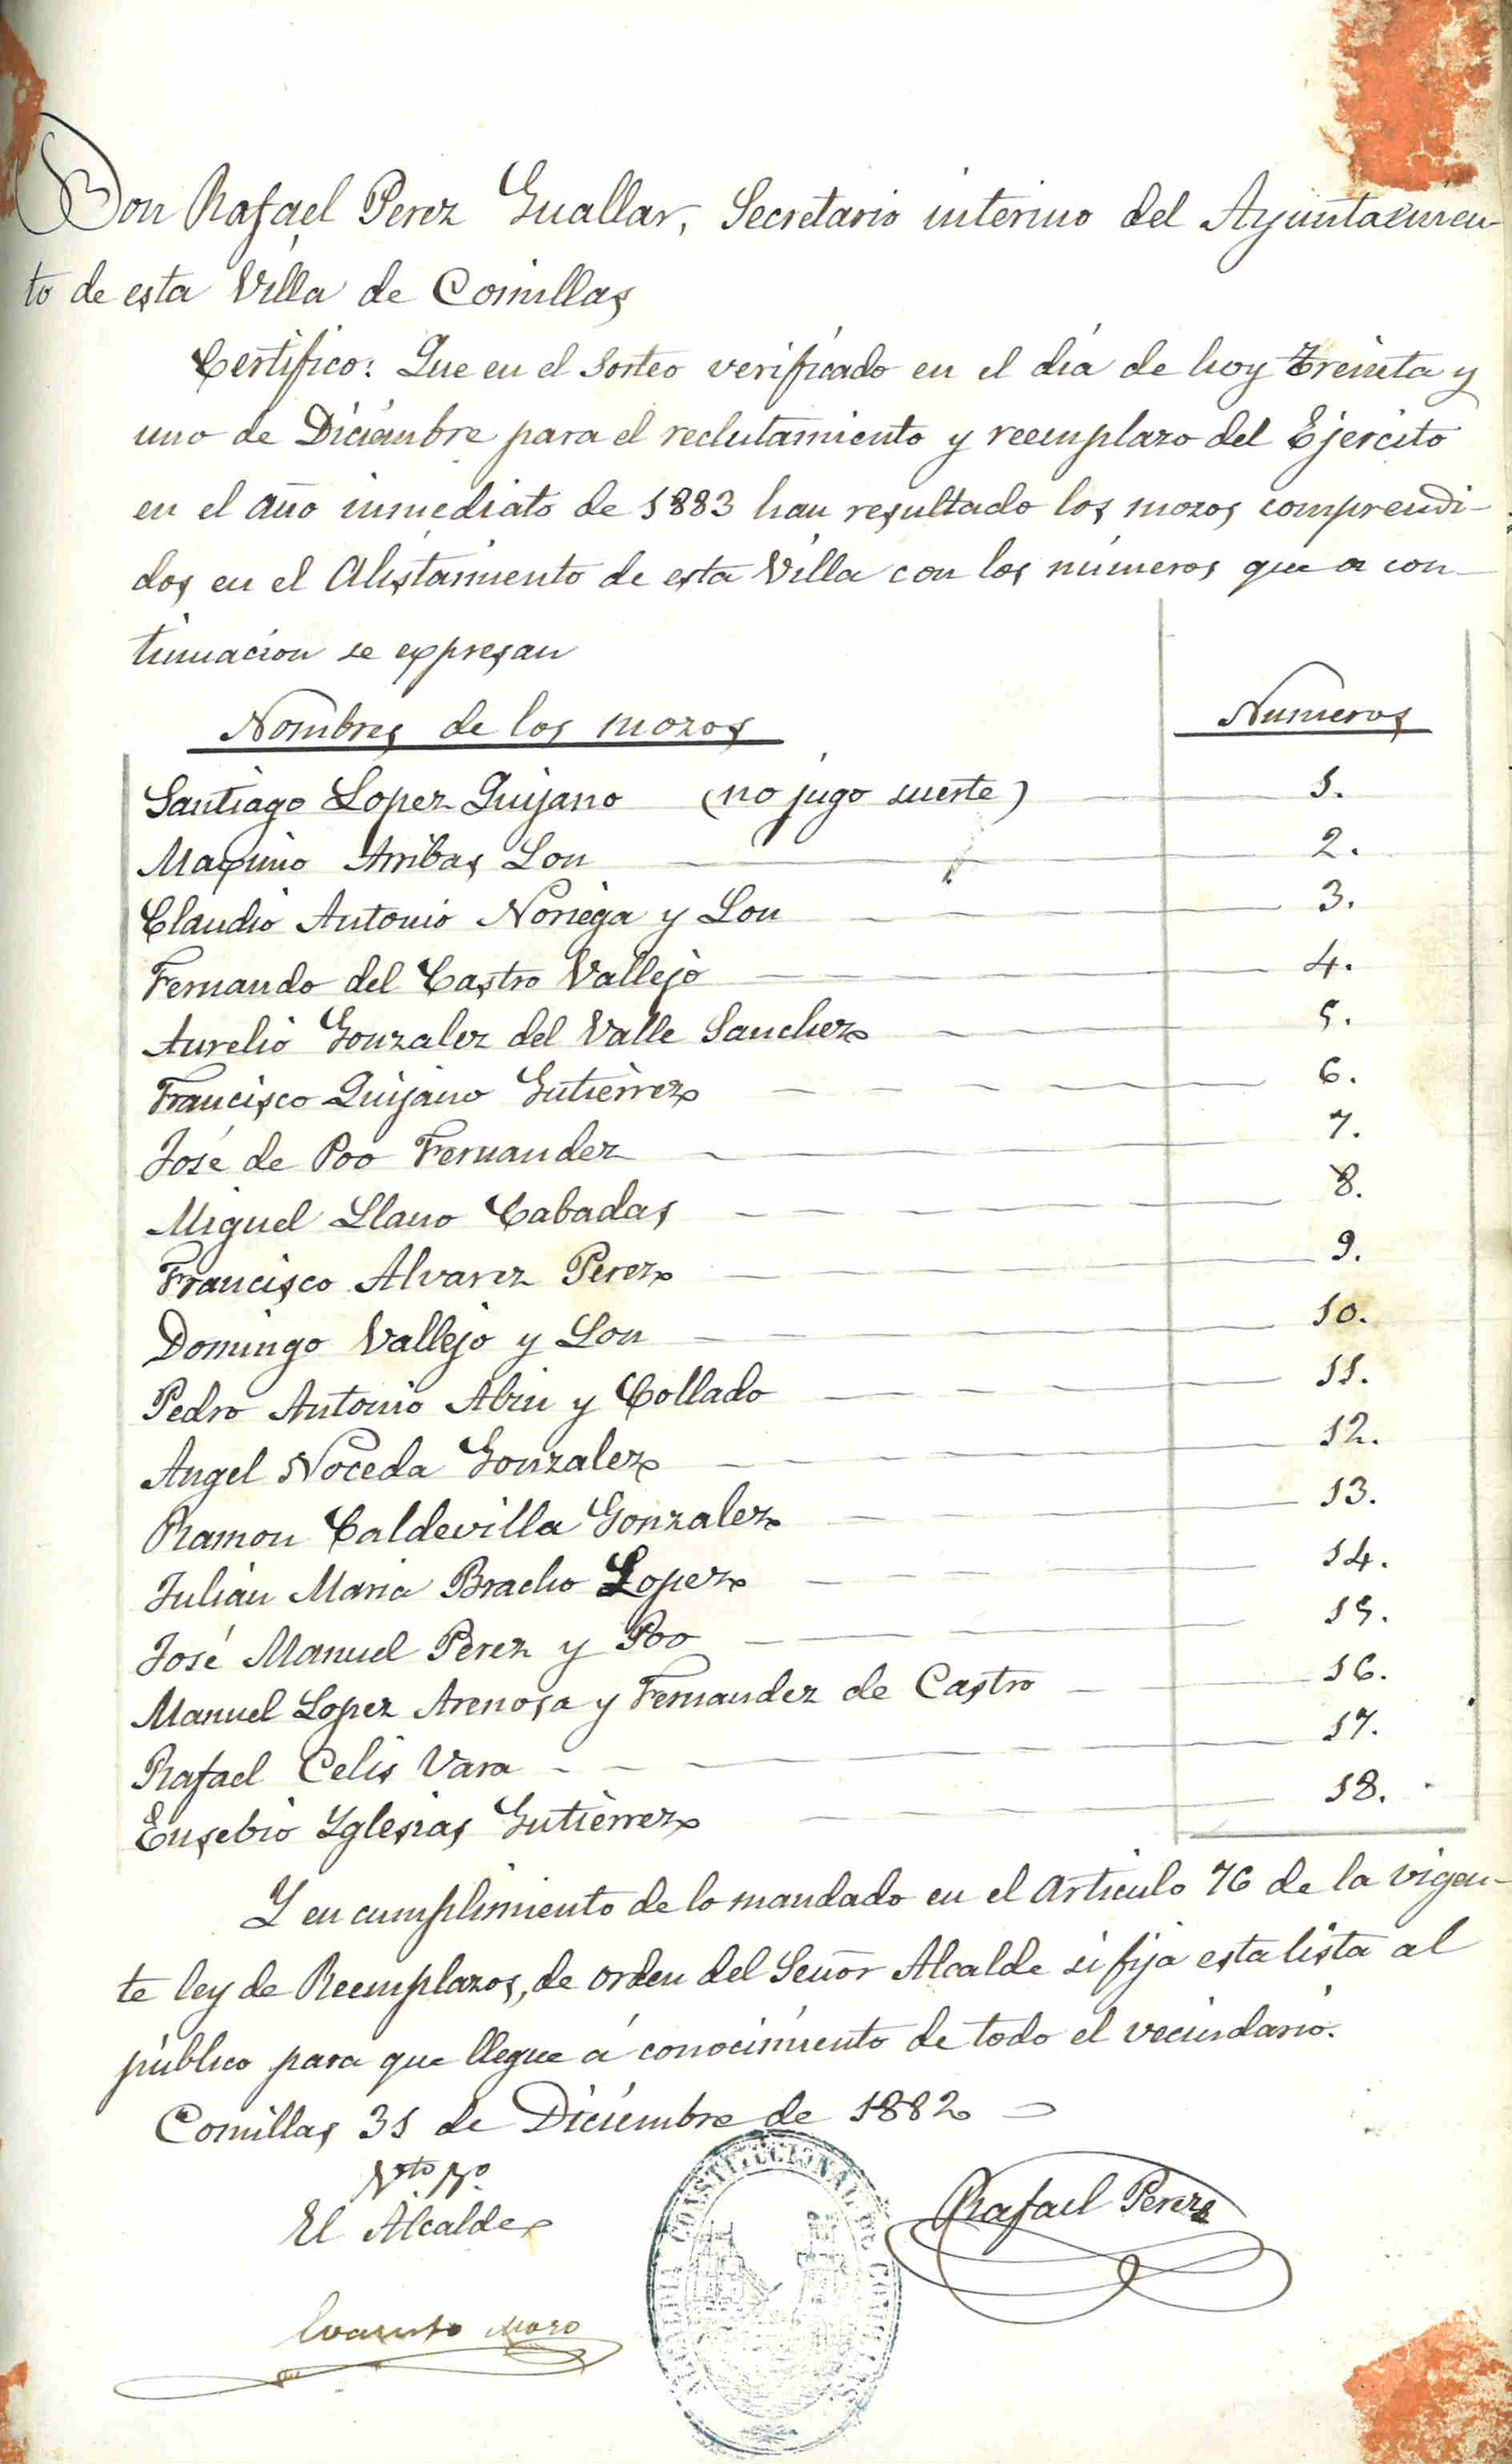 Don Rafael Perez Guallar, Secretario interino del Ayuntamien-
to de esta Villa de Comillas
Certifico: Que en el Sorteo verificado en el día de hoy treinta y
uno de Diciembre para el reclutamiento y reemplazo del Ejercito
en el año inmediato de 1883 han resultado los mozos comprendi-
dos en el Alistamiento de esta Villa con los números que a con-
tinuacion se expresan
Nombres de los mozos Numeros
Santiago Lopez Quijano (no jugo suerte) 1.
Maximo Arribas Lon 2.
Claudio Antonio Noriega y Lon 3.
Fernando del Castro Vallejo 4.
Aurelio Gonzalez del Valle Sanchez 5.
Francisco Quijano Gutierrez 6.
José de Poo Fernandez 7.
Miguel Llano Cabadas 8.
Francisco Alvarez Perez 9.
Domingo Vallejo y Lon 10.
Pedro Antonio Abin y Collado 11.
Angel Noceda Gonzalez 12.
Ramon Caldevilla Gonzalez 13.
Julian Maria Bracho Lopez 14.
José Manuel Perez y Poo 15.
Manuel Lopez Arenosa y Fernandez de Castro 16.
Rafael Celis Vara 17.
Eusebio Yglesias Gutierrez 18.
Y en cumplimiento de lo mandado en el Articulo 76 de la vigen-
te ley de Reemplazos, de orden del Señor Alcalde se fija esta lista al
público para que llegue á conocimiento de todo el vecindario.
Comillas 31 de Diciembre de 1882
Vto Bo
El Alcalde
Rafael Perez
Evaristo Moro
CONSTITUCIONAL DE COMILLAS